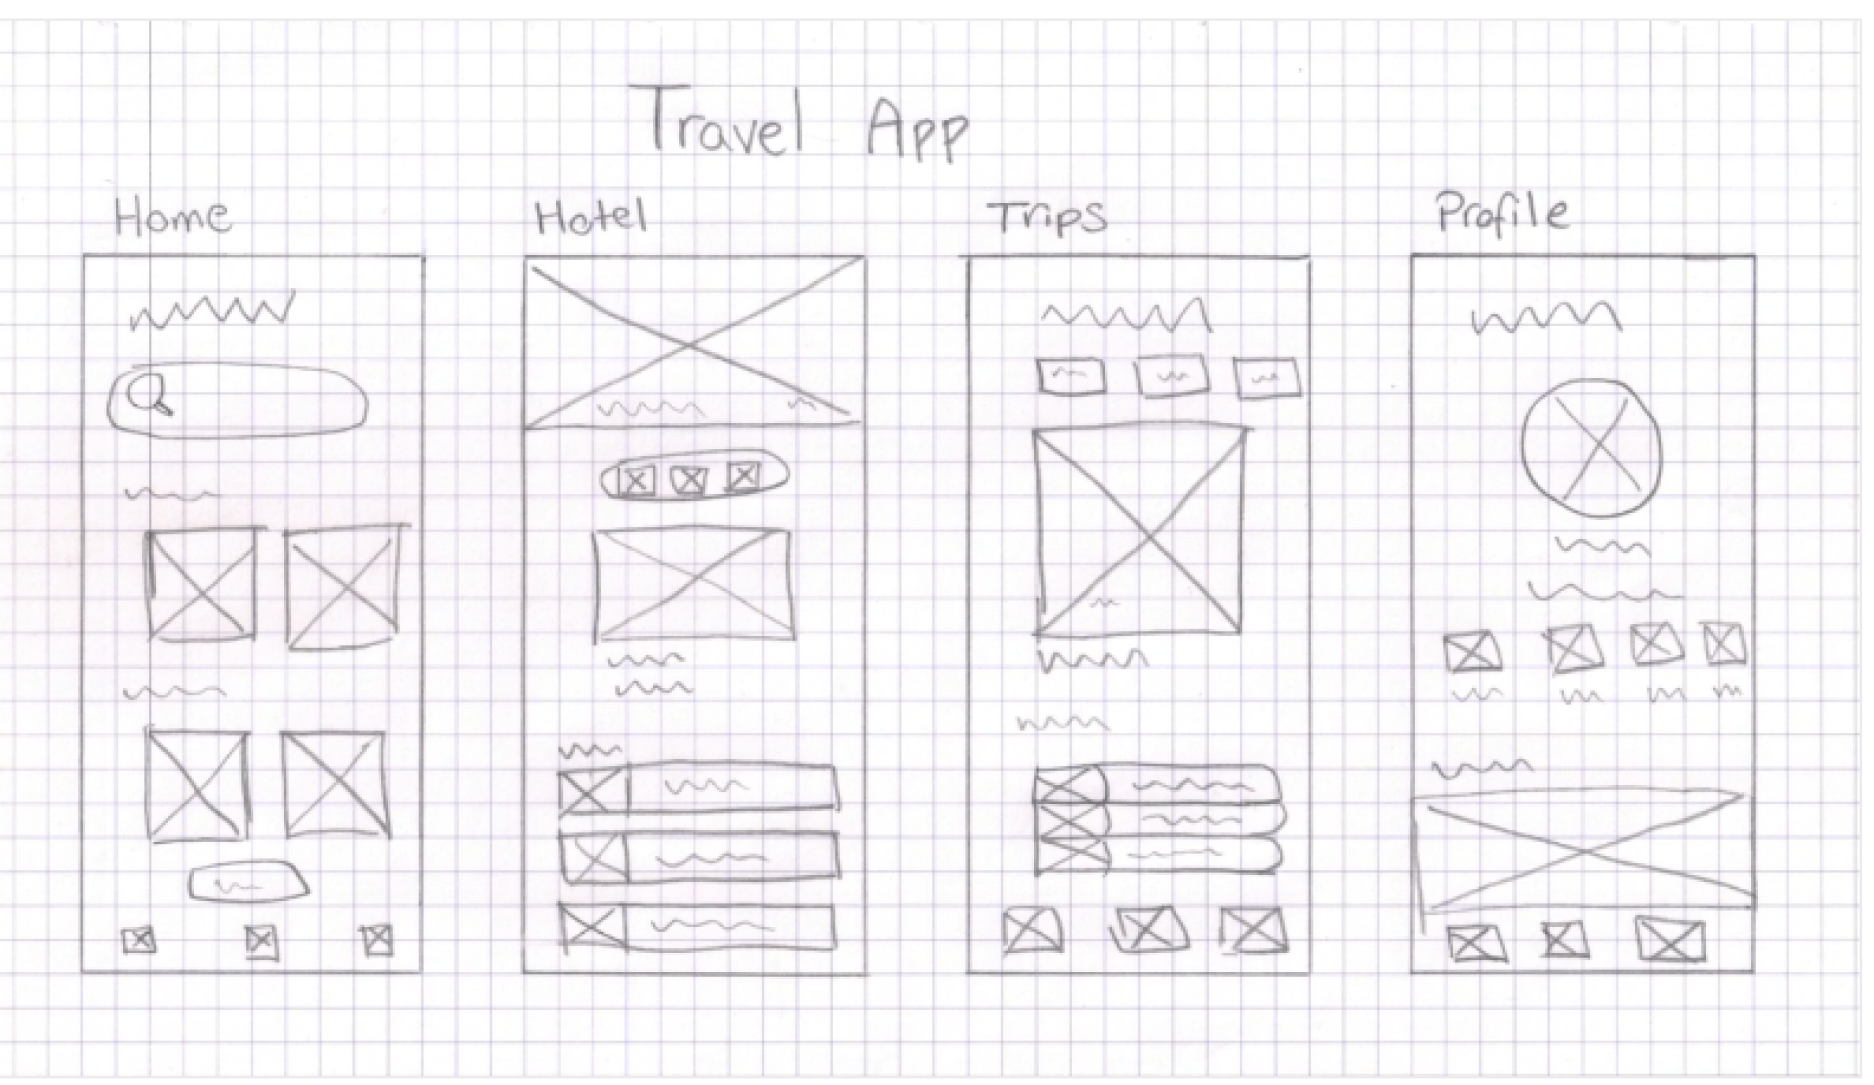 Travel App
Home
Hotel
Trips
Profile